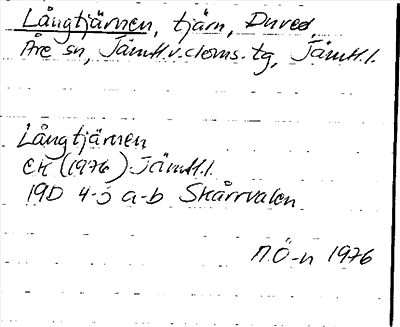 Långtjärnen, tjärn, Duved,
Åre sn, Jämtl.v.doms.tg, Jämtl.l.
Långtjärnen
EK (1976) Jämtl.l.
19D 4-5 a-b Skårrvalen
M.Ö-n 1976